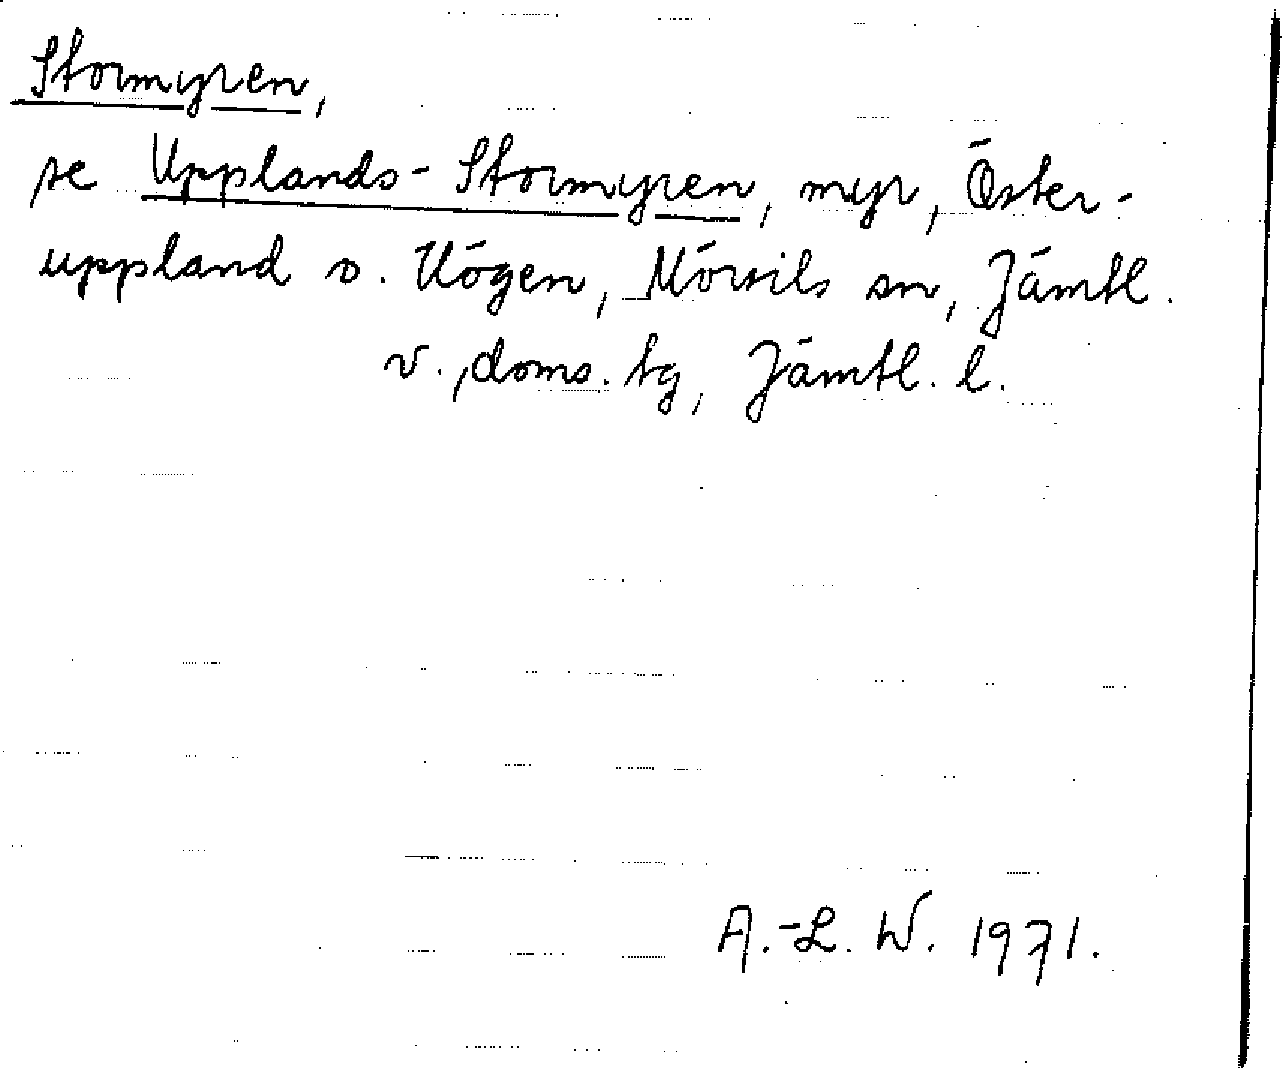 Stormyren,
se Upplands-Stormyren, myr, Öster-
uppland o. Högen, Mörsils sn, Jämtl.
v. doms. tg, Jämtl. l.
A.-L. W. 1971.